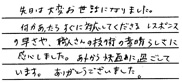 先日は大変お世話になりました。
何かあたらすぐに対応してくださるレスポンス
の早さや、職人さんの技術の素晴らしさに
感心しました。あれから快適に過ごして
います。ありがとうございました。